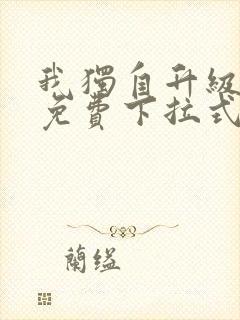 我獨自升級
免費下拉式
蘭縊